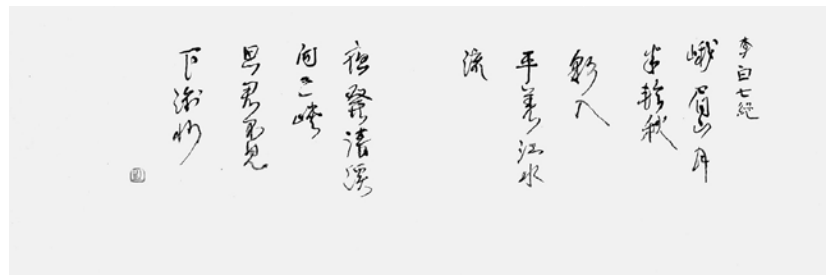 李白七絕
峨眉山月
半輪秋
影入
平羌江水
流
夜發清溪
向三峽
思君不見
下渝州